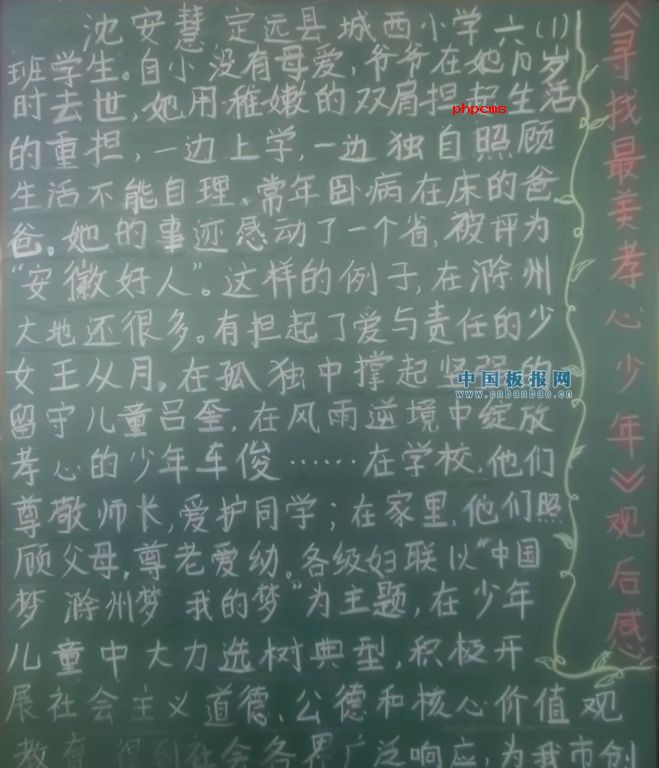 《寻找最美孝心少年》观后感
沈安慧 定远县城西小学六(1)
班学生。自小没有母爱,爷爷在她八岁
时去世,她用稚嫩的双肩担起生活
phpcms
的重担,一边上学,一边独自照顾
生活不能自理、常年卧病在床的爸
爸。她的事迹感动了一个省,被评为
“安徽好人”。这样的例子,在滁州
大地还很多。有担起了爱与责任的少
女王从月,在孤独中撑起坚强的
中国板报网
www.cnbanbao.cn
留守儿童吕奎,在风雨逆境中绽放
孝心的少年车俊……在学校,他们
尊敬师长,爱护同学;在家里,他们照
顾父母,尊老爱幼。各级妇联以“中国
梦 滁州梦 我的梦”为主题,在少年
儿童中大力选树典型,积极开
展社会主义道德、公德和核心价值观
教育,得到社会各界广泛响应,为我市创